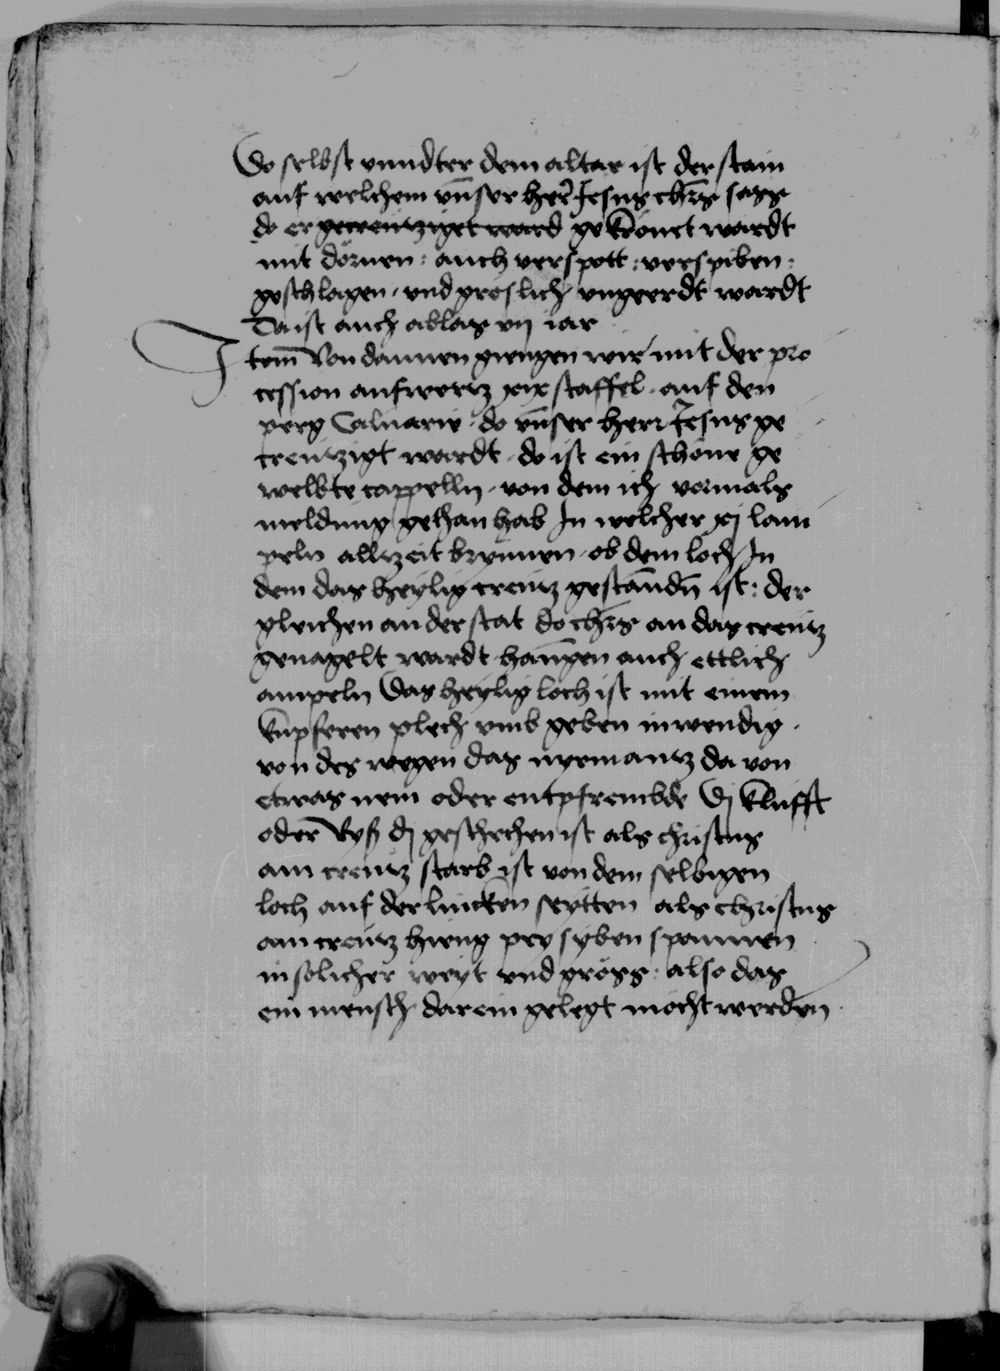 Do selbst vnndter dem altar ist der stain
auf welchem vnser her Jesus chr̄s sass
do er gecreutziget ward gekrönet wardt
mit dörnen : auch verspott : verspiben :
geschlagen · vnd gröslich vngeerdt wardt
Da ist auch ablas vij iar
Item Von dannen giengen wir mit der pro
cession aufwertz xix staffel · auf den
perg Caluarie · do vnser herr Jesus ge
creutzigt wardt · do ist ein schöne ge
welbte cappelln · von dem ich vormals
meldung gethan hab In welcher xj lam
peln allzeit brynnen · ob dem loch In
dem das heylig creutz gestandn̄ ist : der
gleichen an der stat do chr̄s an das creutz
genagelt wardt hangen auch ettlich
ampeln Das heylig loch ist mit einem
kupferen plech vmb geben inwendig ·
von des wegen das nyemantz da von
etwas nem oder entpfrembde Dj klufft
oder Ryß dj geschehen ist als christus
am creutz starb ist von dem selbigen
loch auf der lincken seytten als christus
am creutz hieng pey syben spannen
in sölicher weyt vnd gröss : also das
ein mensch darein gelegt möcht werden